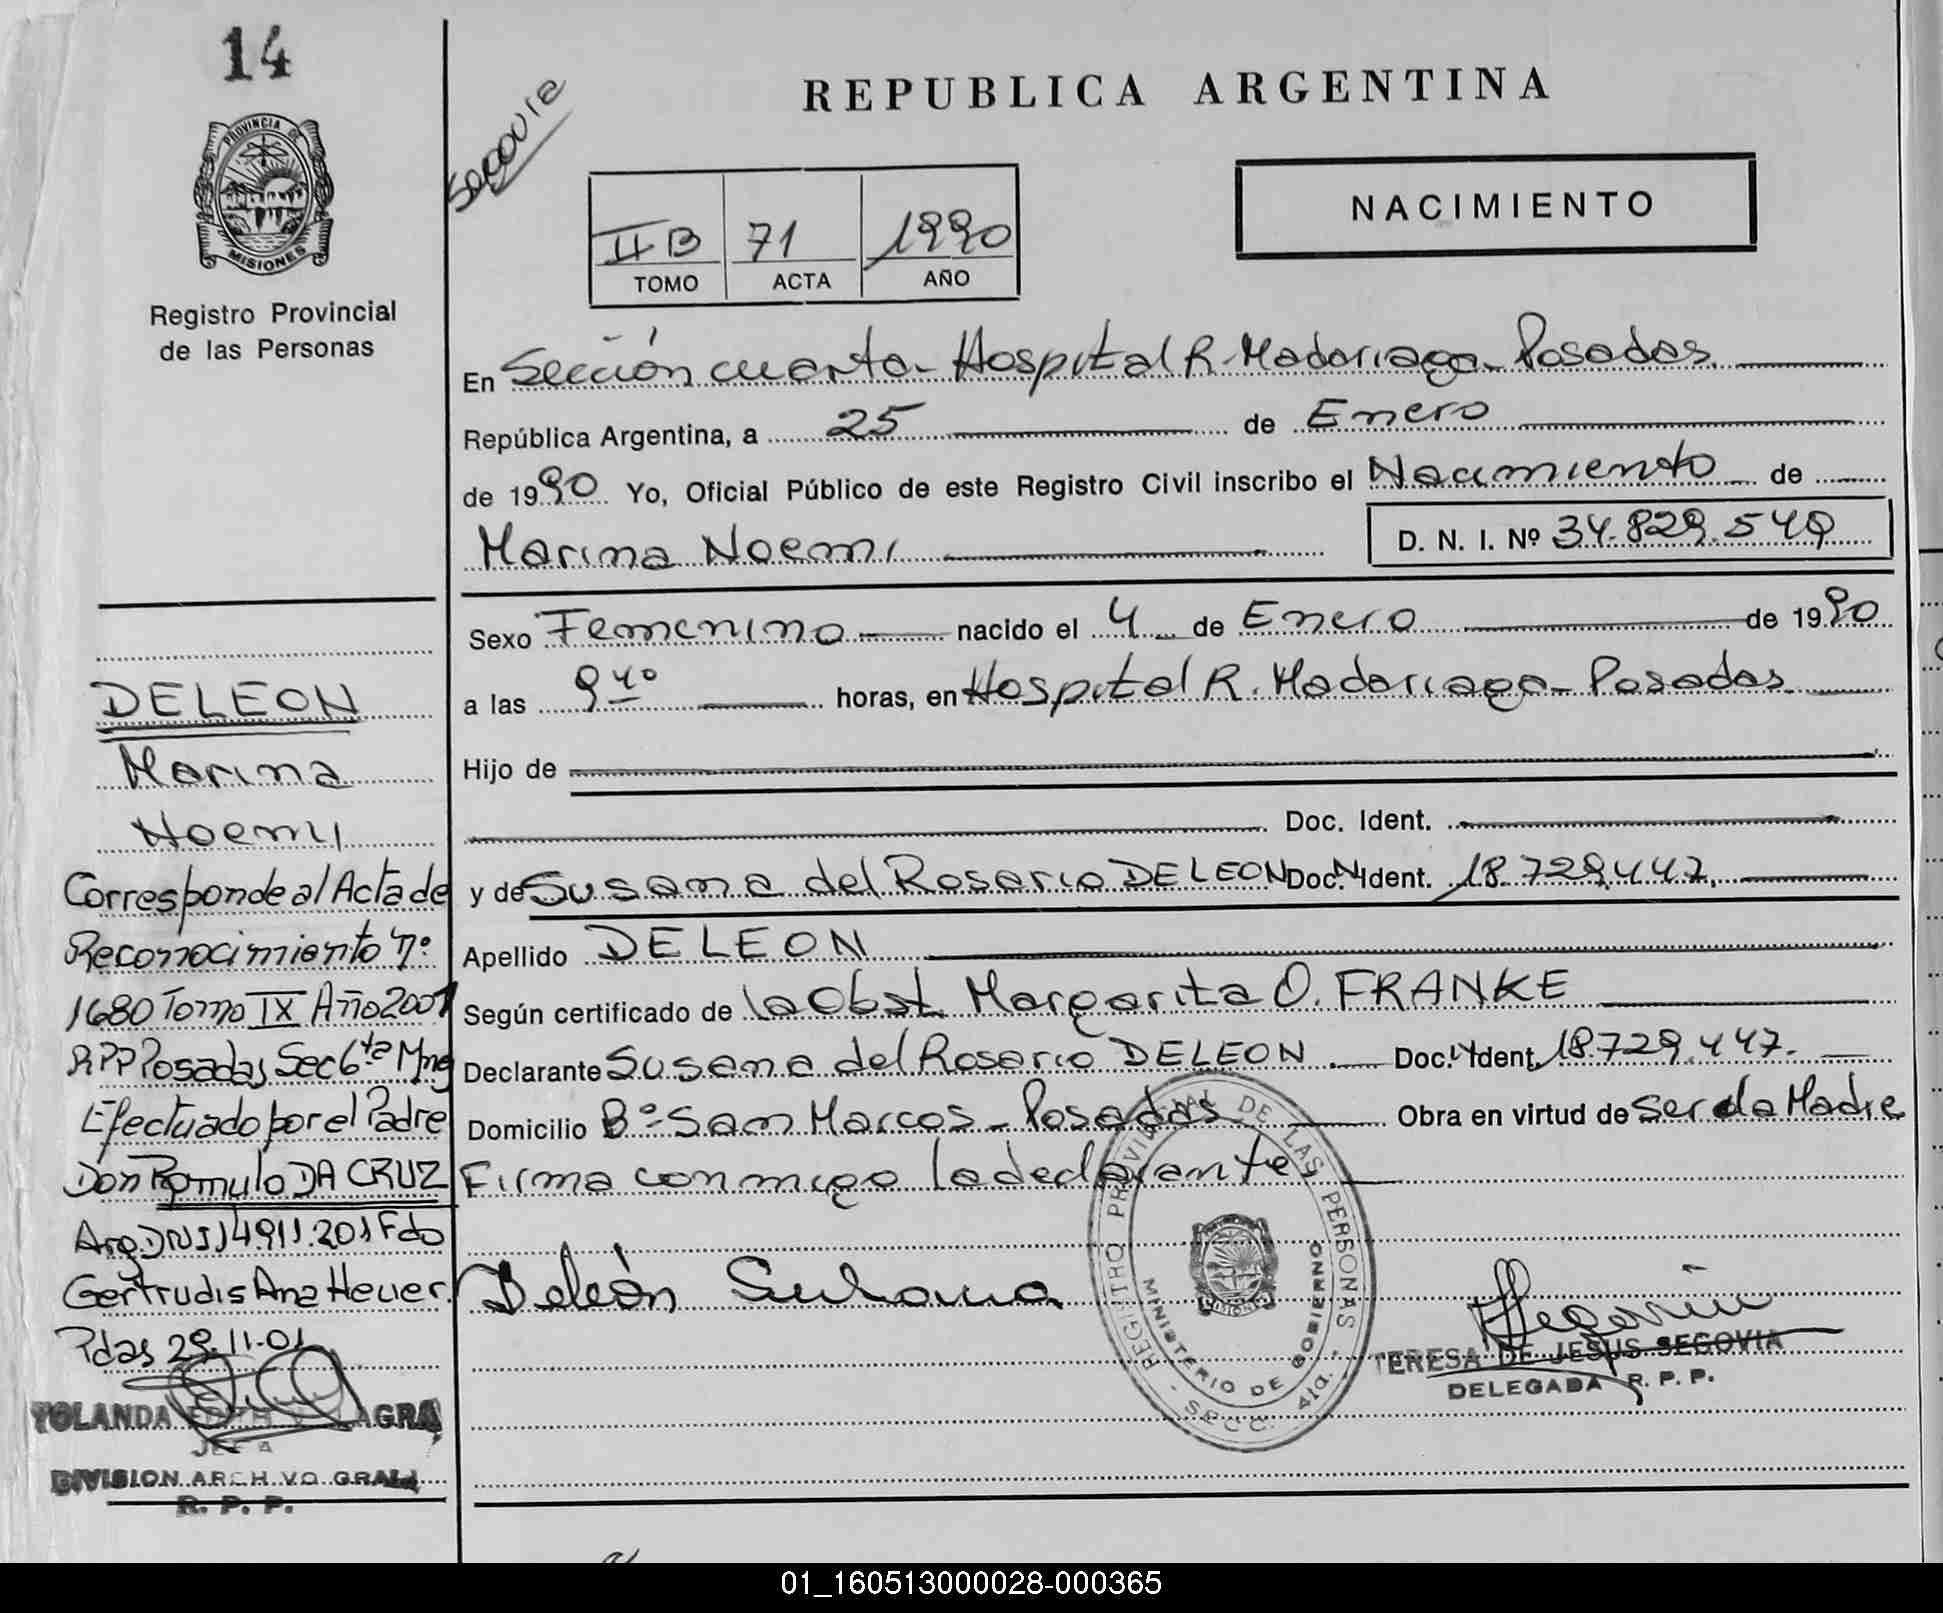 14
PROVINCIA DE
MISIONES
Registro Provincial
de las Personas
DELEON
Marina
Noemi
Corresponde al Acta de
Reconocimiento nº
1680 Tomo IX Año 2001
RPP Posadas Sec 6ta Mnes
Efectuado por el Padre
Don Romulo DA CRUZ
Arg. DNI 14.911.201 Fdo
Gertrudis Ana Heuer.
Pdas 29.11.01
YOLANDA
JEFA
DIVISION ARCHIVO GRAL.
R. P. P.
Segovia
REPUBLICA ARGENTINA
II B 71 1990
TOMO ACTA AÑO
NACIMIENTO
En Sección cuarta - Hospital R. Madariaga - Posadas
República Argentina, a 25 de Enero
de 1990 Yo, Oficial Público de este Registro Civil inscribo el Nacimiento de
Marina Noemi D. N. I. Nº 34.829.549
Sexo Femenino nacido el 4 de Enero de 1990
a las 9 40 horas, en Hospital R. Madariaga - Posadas
Hijo de
Doc. Ident.
y de Susana del Rosario DELEON Doc. N Ident. 18.729.447.
Apellido DELEON
Según certificado de la Obst. Margarita O. FRANKE
Declarante Susana del Rosario DELEON Doc. N Ident. 18.729.447.
Domicilio Bº San Marcos - Posadas Obra en virtud de ser la Madre
Firma conmigo la declarante
Deleón Susana
REGISTRO PROVINCIAL DE LAS PERSONAS
MINISTERIO DE GOBIERNO
SECC. 4ta.
MISIONES
TERESA DE JESUS SEGOVIA
DELEGADA R. P. P.
01_160513000028-000365